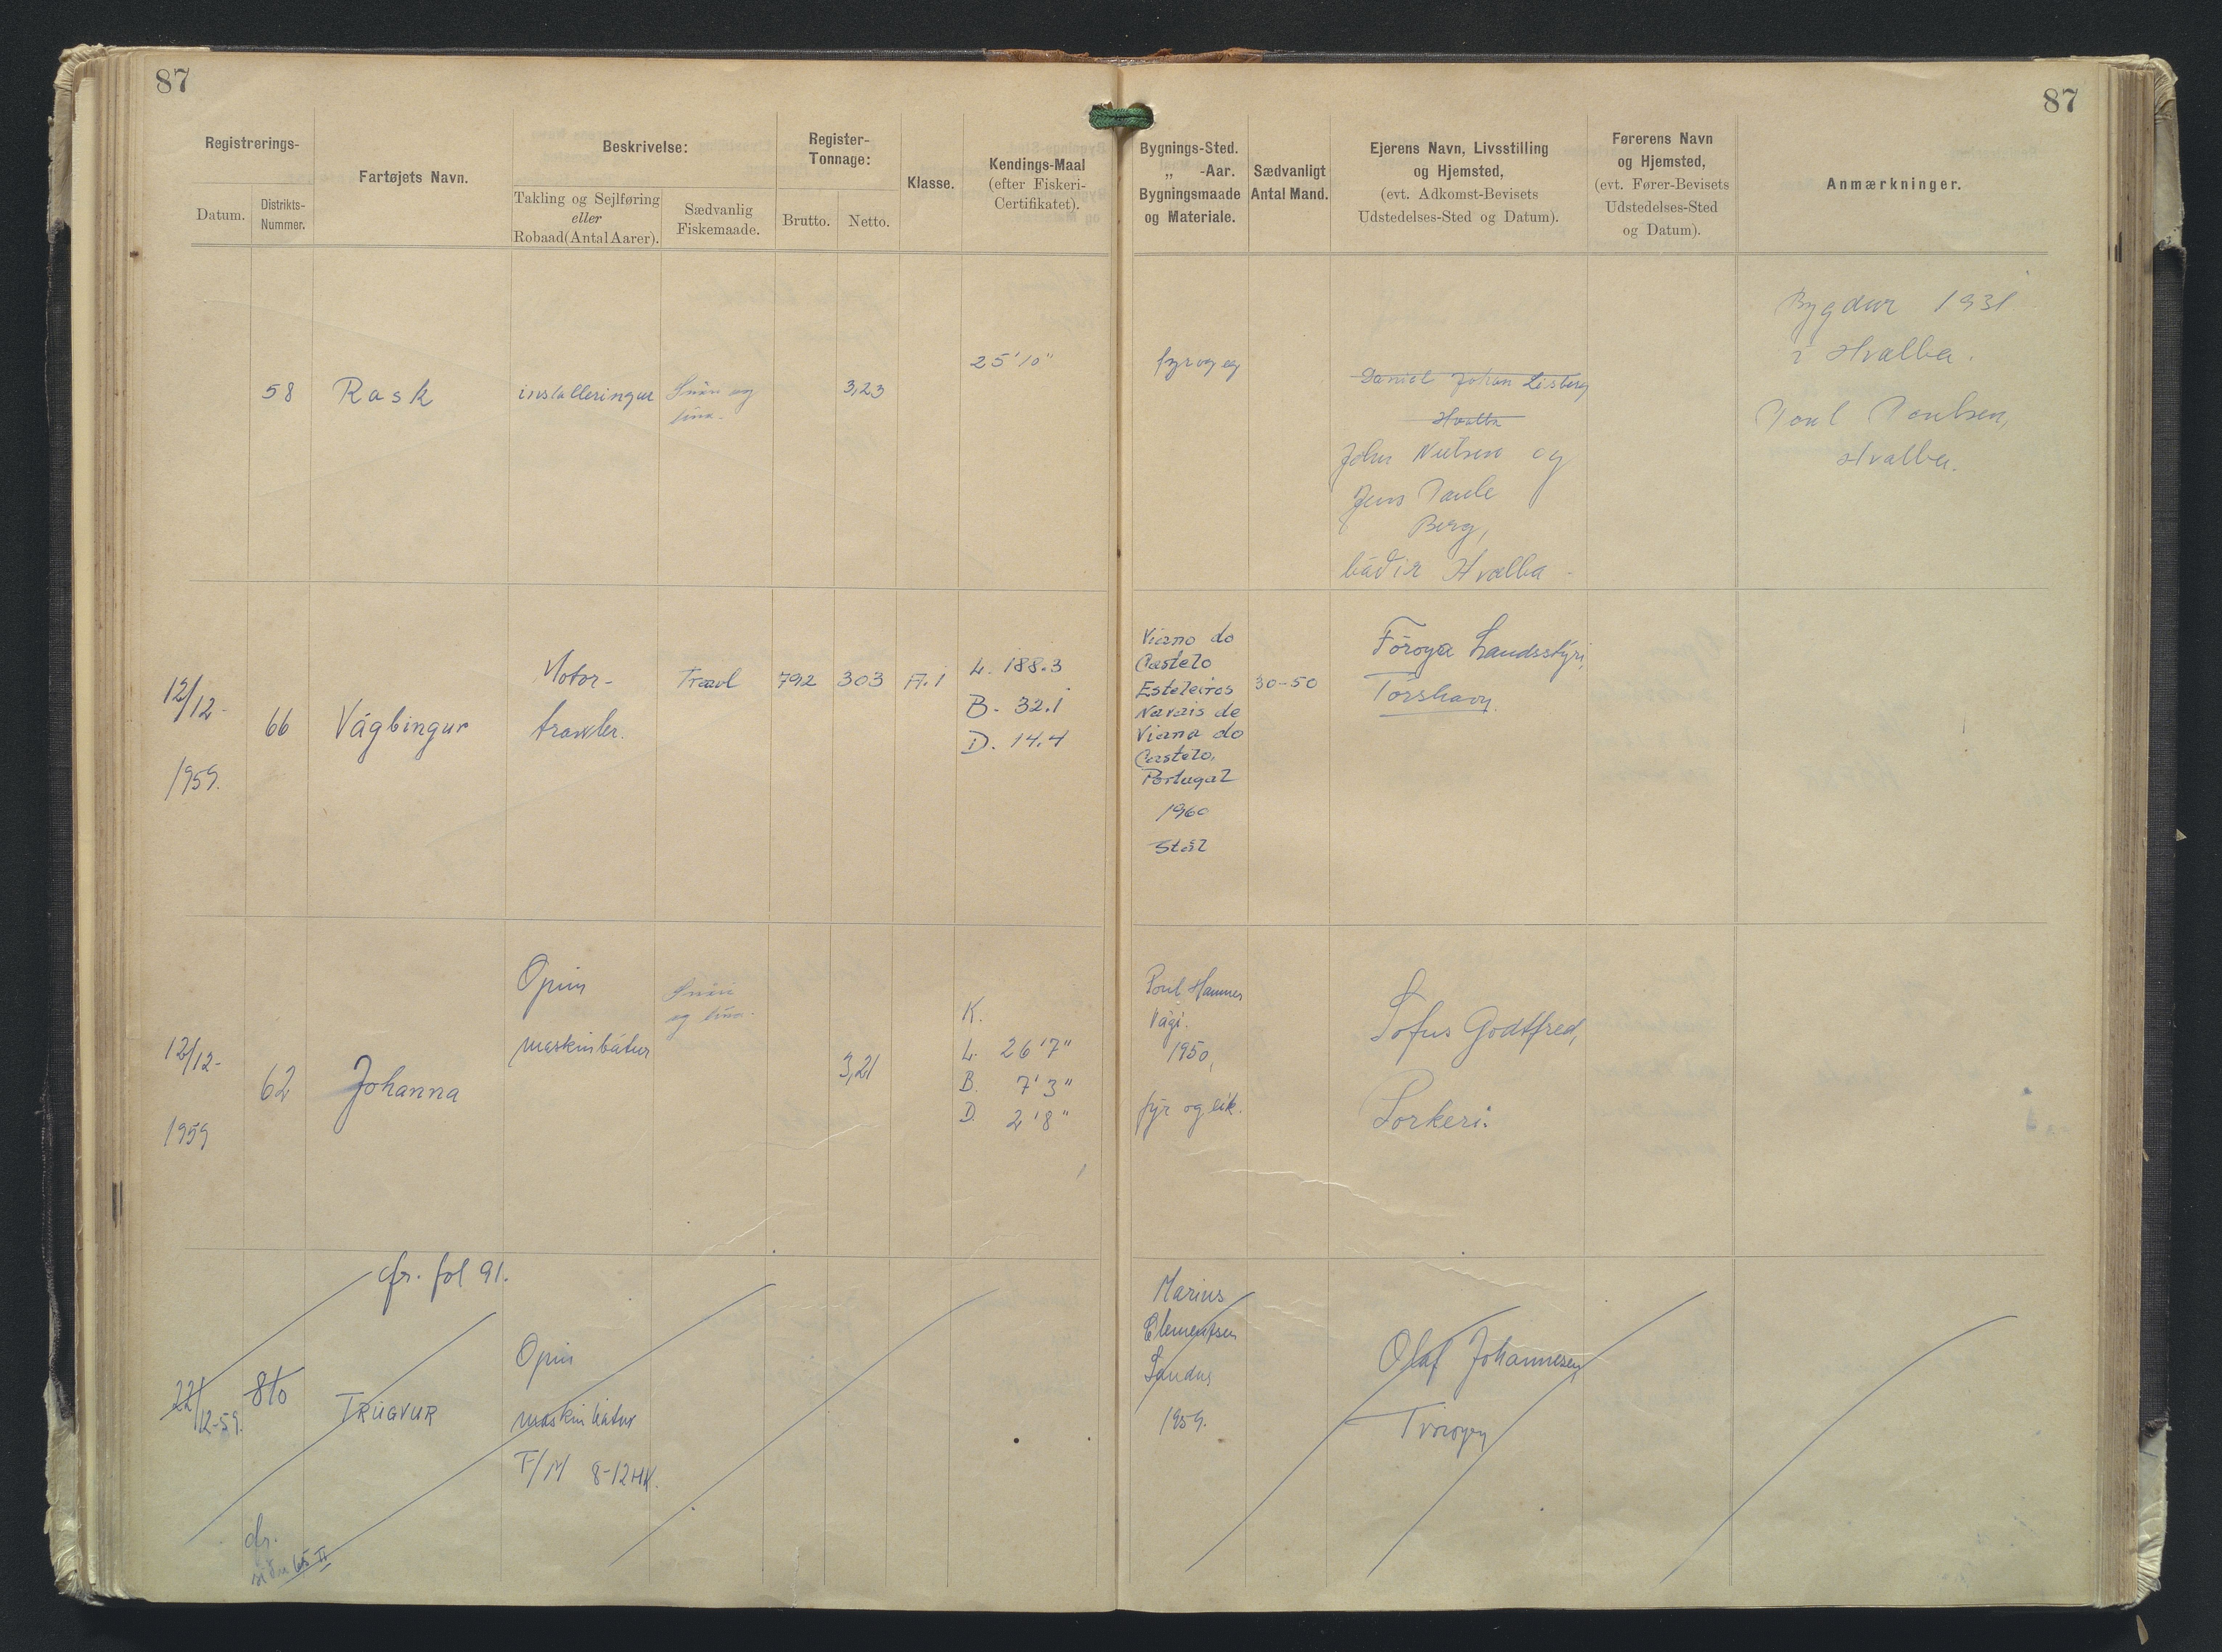 87
87
Registrerings-
Datum.
Distrikts-
Nummer.
Fartøjets Navn.
Beskrivelse:
Takling og Sejlføring
eller
Robaad (Antal Aarer).
Sædvanlig
Fiskemaade.
Register-
Tonnage:
Brutto.
Netto.
Klasse.
Kendings-Maal
(efter Fiskeri-
Certifikatet).
Bygnings-Sted.
„ -Aar.
Bygningsmaade
og Materiale.
Sædvanligt
Antal Mand.
Ejerens Navn, Livsstilling
og Hjemsted,
(evt. Adkomst-Bevisets
Udstedelses-Sted og Datum).
Førerens Navn
og Hjemsted,
(evt. Fører-Bevisets
Udstedelses-Sted
og Datum).
Anmærkninger.
58
Rask
Snøri og
lína.
3,23
25'10"
fyr og eg
Daniel Johan Lisberg
Hvalba
John Nielsen og
Jens Paule
Berg,
báðir Hvalba
Bygdur 1931
í Hvalba.
Poul Poulsen,
Hvalba.
12/12-
1959.
66
Vágbingur
Motor-
trawler.
Trawl
792
303
A.1
L. 188.3
B. 32.1
D. 14.4
Viano do
Castelo
Esteleiros
Navais de
Viana do
Castelo,
Portugal
1960
Stál
30-50
Føroya Landsstýri,
Tórshavn.
12/12-
1959
62
Johanna
Opin
maskinbátur
Snøri
og lína.
3,21
K.
L. 26'7"
B. 7'3"
D. 2'8"
Poul Hammer
Vági.
1950,
fýr og eik.
Sofus Godtfred,
Porkeri.
cfr. fol 91.
22/12-59.
810
TRÚGVUR
Opin
maskinbátur
T/M 8-12HK.
Marius
Clementsen
Sandur
1959.
Olaf Johannesen
Tvøroyri
cfr.
síðu 65 II